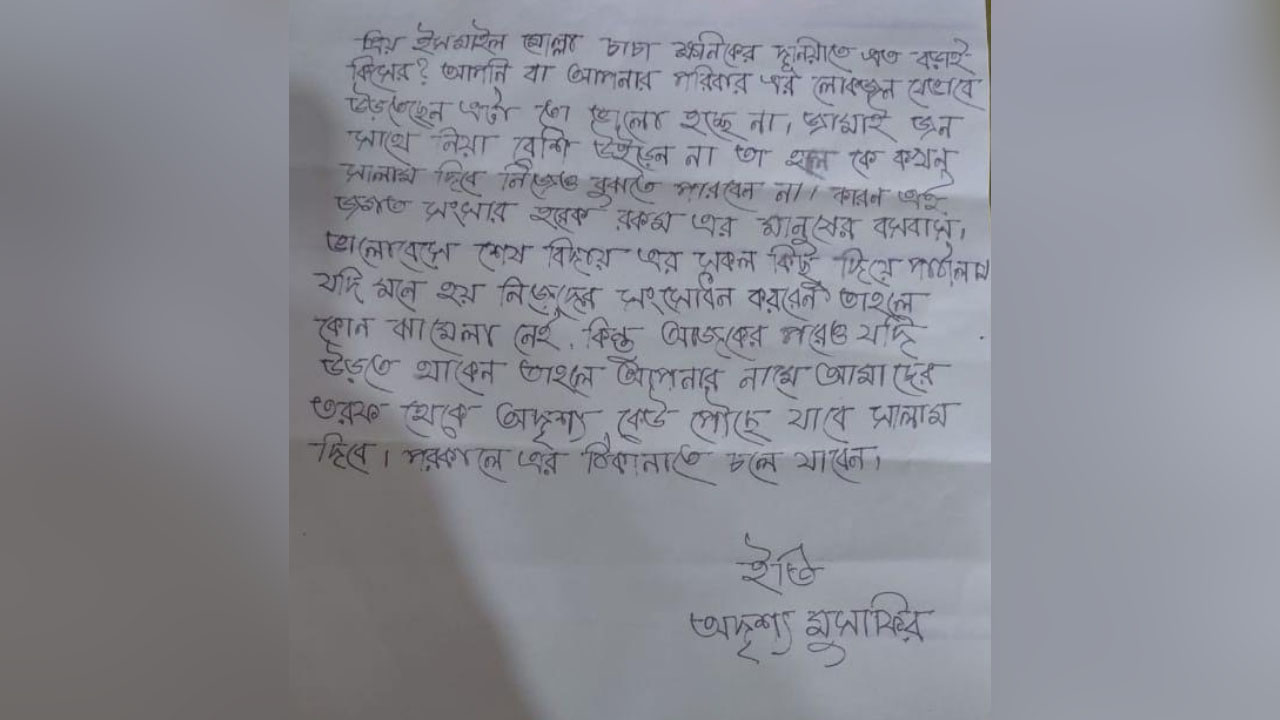 প্রিয় ইসমাইল মোল্লা চাচা ক্ষনিকের দুনিয়াতে এত বড়াই
কিসের? আপনি বা আপনার পরিবার এর লোকজন যেভাবে
উড়তেছেন এটা তো ভালো হচ্ছে না। জামাই জন
সাথে নিয়া বেশি উইড়েন না তা হলে কে কখন
সালাম দিবে নিজেও বুঝতে পারবেন না। কারন এই
জগত সংসার হরেক রকম এর মানুষের বসবাস।
ভালোবেসে শেষ বিদায় এর সকল কিছু দিয়ে পাঠালাম
যদি মনে হয় নিজেদের সংসোধন করবেন তাহলে
কোন ঝামেলা নেই, কিন্তু আজকের পরেও যদি
উড়তে থাকেন তাহলে আপনার নামে আমাদের
তরফ থেকে অদৃশ্য কেউ পৌছে যাবে সালাম
দিবে। পরকালে এর ঠিকানাতে চলে যাবেন।
ইতি
অদৃশ্য মুসাফির